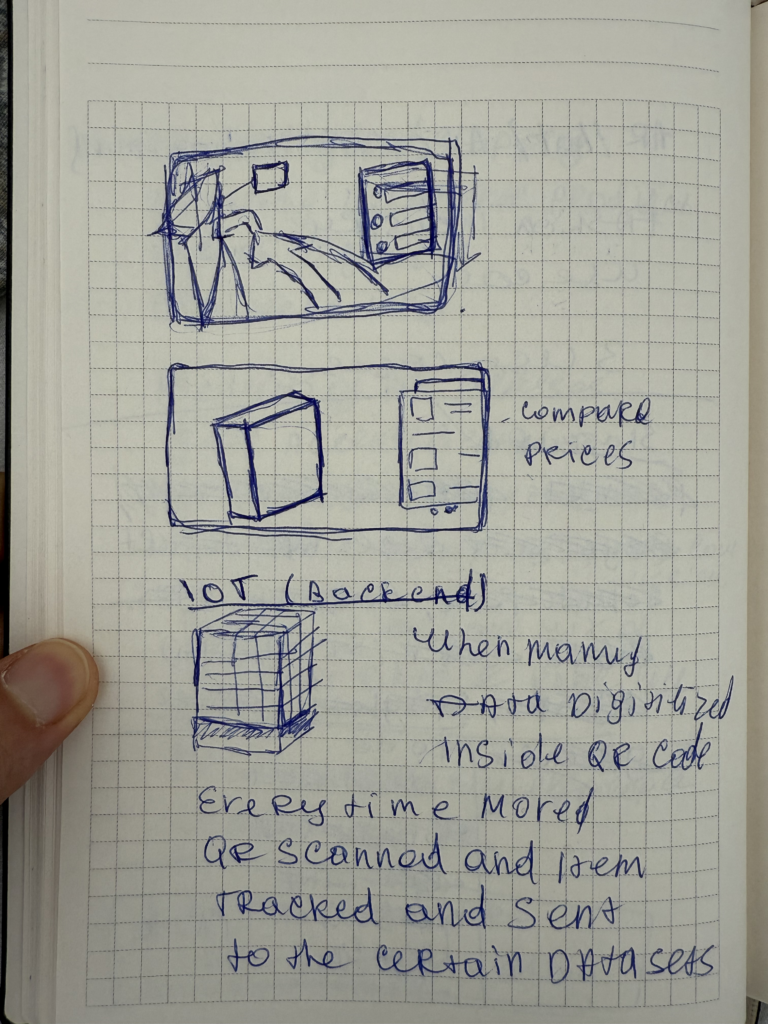 compare
prices
IOT (Backend)
When manuf
Data Digitilized
inside QR code
Every time moved
QR scanned and Item
tracked and sent
to the certain Datasets